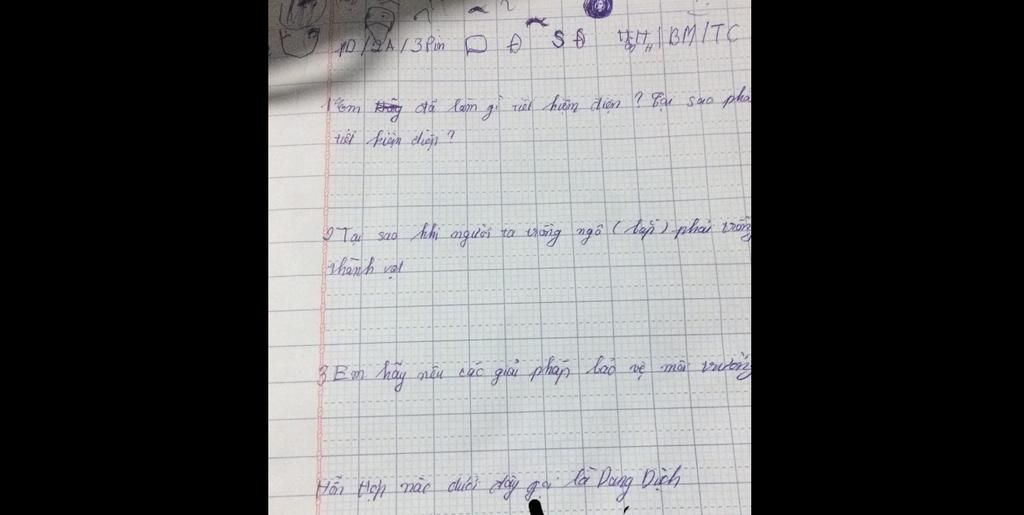 1D / 2A / 3 Pin S / BM / TC
1 Em đã làm gì tiết kiện điện ? Tại sao phả
tiết kiện điện ?
2 Tại sao khi người ta trồng ngô ( bắp ) phải trồng
thành vạt
3 Em hãy nêu các giải pháp bảo vệ môi trường
Hỗn Hợp nào dưới đây gọi là Dung Dịch